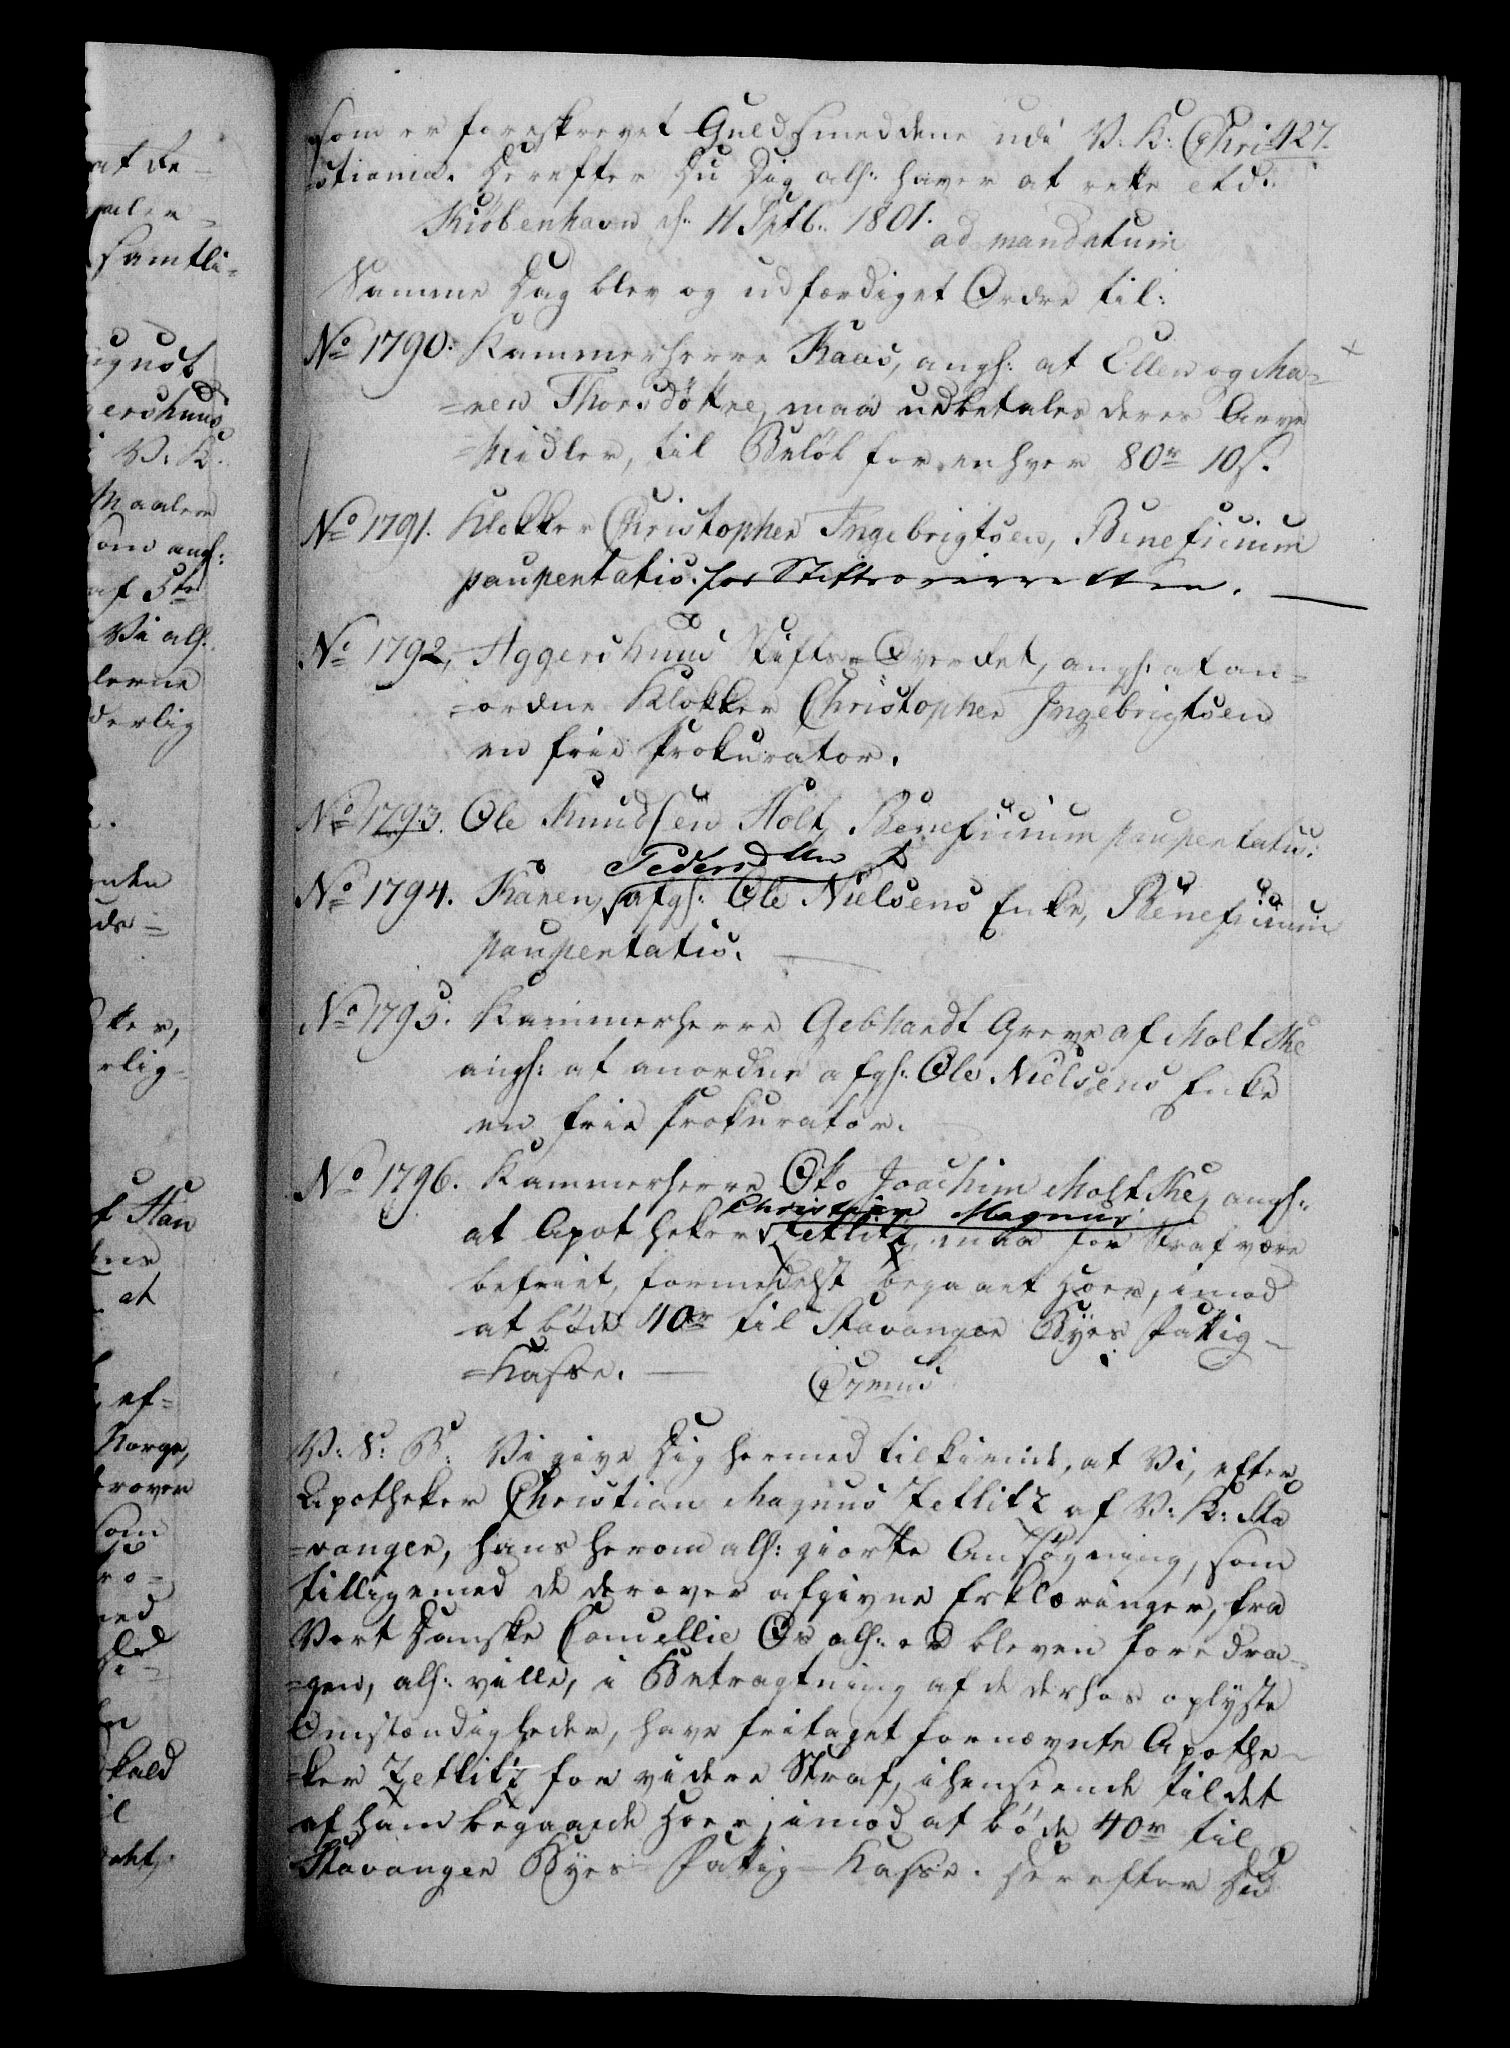 som er foreskrevet Guldsmeddene udi V: K: Chri- 427.
stiania. Derefter Du Dig alh: haver at rette etc.
Kiøbenhavn d: 11 Sptb: 1801. ad mandatum
Samme Dag blev og udfærdiget Ordre til:
No 1790. Kammerherre Kaas, angh: at Ellen og Ma-
=ren Thorsdøttre, maa udbetales deres Arve
=Midler, til Beløb for enhver 80r 10s.
No 1791. Klokker Christopher Ingebrigtsen, Beneficium
paupertatis. for Stiftsoverretten.
No 1792, Aggershuus Stifts-Overret, angh: at an-
=ordne Klokker Christopher Ingebrigtsen
en frie Prokurator.
No 1793. Ole Knudsen Holt, Beneficium paupertatis.
Pedersdtter
No 1794. Karen, afgh: Ole Nielsens Enke, Beneficium
paupertatis.
No 1795. Kammerherre Gebhardt Greve af Moltke
angh: at anordne afgh: Ole Nielsens Enke
en frie Prokurator.
No 1796. Kammerherre Otto Joachim Moltke, angh:
Christian Magnus
at Apotheker Zetlitz, maa for Straf være
befriet, formedelst begaaet Hoer, imod
at bøde 40r til Stavanger Byes Fattig-
=Kasse.
V: S: B: Vi give Dig hermed tilkiende, at Vi, efter
Apotheker Christian Magnus Zetlitz af V: K: Sta
=vanger, hans herom alh: giorte Ansøgning, som
tilligemed de derover afgivne Erklæringer, fra
Vort Danske Cancellie Os alh: er bleven foredra-
=gen, alh: ville, i Betragtning af de derhos oplyste
Omstændigheder, have fritaget fornævnte Apothe-
=ker Zetlitz for videre Straf, ihenseende til det
af ham begaaede Hoer, imod at bøde 40r til
Stavanger Byes Fattig-Kasse. Derefter Du